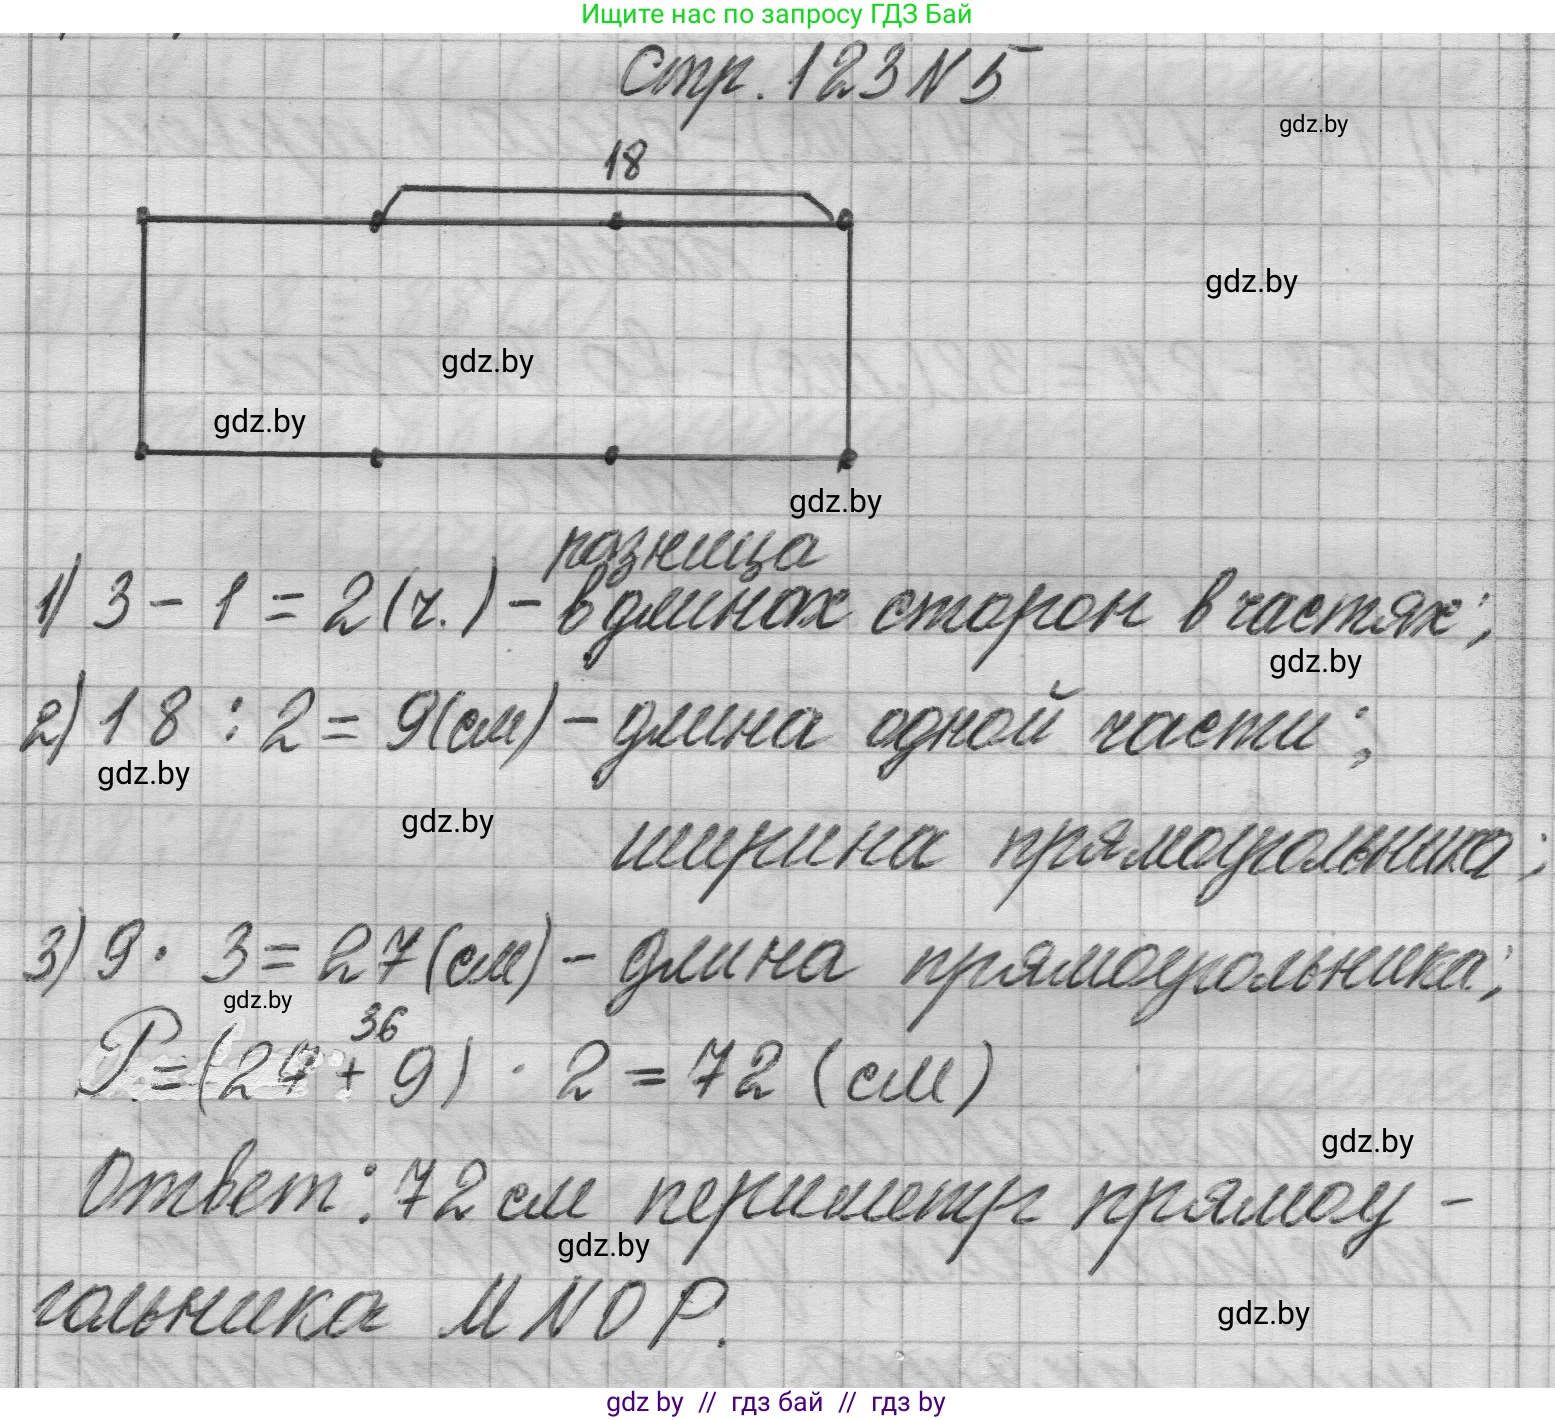 Ищите нас по запросу ГДЗ Бай
Стр. 123 N 5
gdz.by
18
gdz.by
gdz.by
gdz.by
gdz.by
разница
1) 3 - 1 = 2 (ч.) - в длинах сторон в частях;
gdz.by
2) 18 : 2 = 9 (см) - длина одной части;
gdz.by
gdz.by
ширина прямоугольника;
3) 9 · 3 = 27 (см) - длина прямоугольника;
gdz.by
36
P = (27 + 9) · 2 = 72 (см)
gdz.by
Ответ: 72 см периметр прямоу-
gdz.by
гольника MNOP.
gdz.by
gdz.by // гдз бай // гдз by